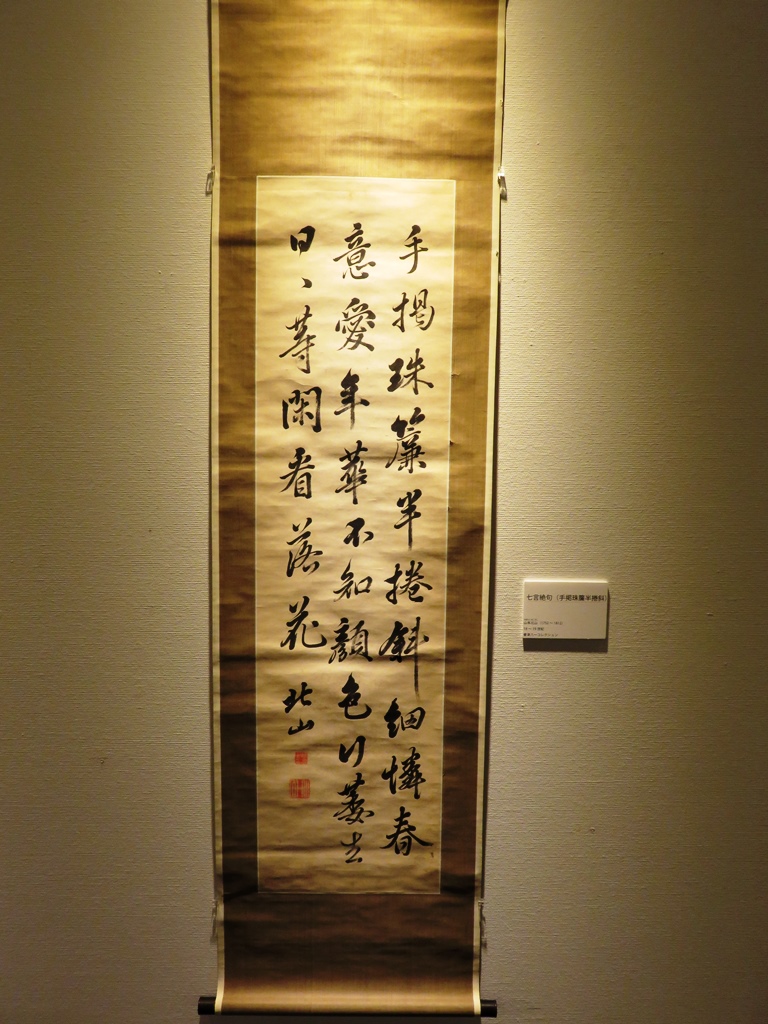 手掲珠簾半捲斜細憐春
意愛年華不知顔色行萎去
日、等閑看落花
北山
七言絶句（手掲珠簾半捲斜）